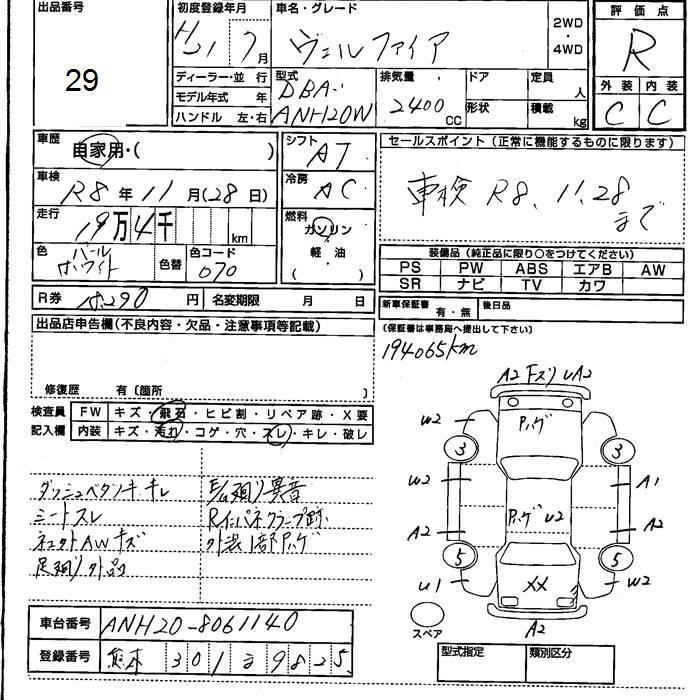 出品番号
29
初度登録年月
H21 7月
車名・グレード
ヴェルファイア
2WD
・
4WD
評価点
R
外装 内装
C C
ディーラー・並行
モデル年式 年
ハンドル 左・右
型式
DBA-
ANH20W
排気量
2400
CC
ドア
形状
定員
人
積載
kg
車歴
自家用・( )
シフト
AT
セールスポイント(正常に機能するものに限ります)
車検 R8.11.28
まで
車検
R8年11月(28日)
冷房
AC
走行
19万4千 km
燃料
ガソリン
軽・油
( )
色
パール
ホワイト
色替
色コード
070
装備品(純正品に限り○をつけてください)
PS PW ABS エアB AW
SR ナビ TV カワ
R券 円
名変期限 月 日
新車保証書
有・無
後日品
(保証書は事務局へ提出して下さい)
出品店申告欄(不良内容・欠品・注意事項等記載)
194065km
修復歴 有〔箇所 〕
検査員
記入欄
FW キズ・飛石・ヒビ割・リペア跡・X要
内装 キズ・汚れ・コゲ・穴・スレ・キレ・破レ
シートスレ
足廻り外品
A2 ﾓｽﾘ U A2
W2
3
3
W2
A1
A2
U2
A2
5
5
U1
XX
W2
A2
スペア
車台番号
ANH20-8061140
登録番号
熊本 301 る 9825
型式指定 類別区分